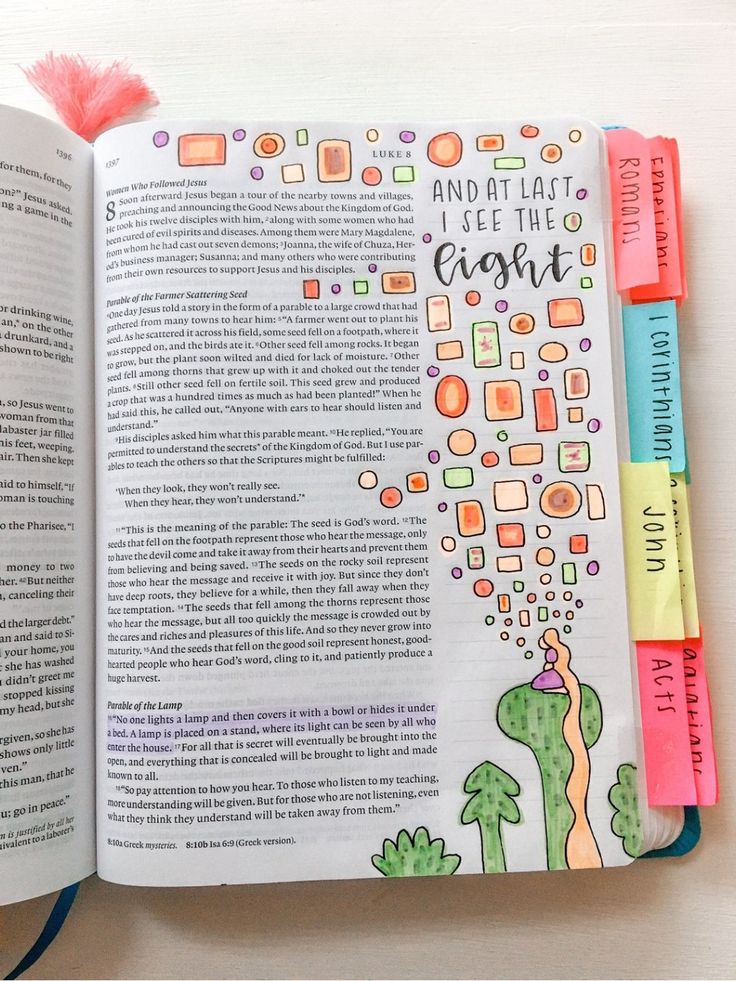 1396
for them, for they
on?” Jesus asked.
ng a game in the
or drinking wine,
an,” on the other
drunkard, and a
shown to be right
so Jesus went to
woman from that
labaster jar filled
his feet, weeping.
air. Then she kept
said to himself, “If
oman is touching
o the Pharisee, “I
money to two
her. 42But neither
n, canceling their
d the larger debt.”
an and said to Si-
your home, you
she has washed
didn’t greet me
stopped kissing
my head, but she
rgiven, so she has
shows only little
ven.”
this man, that he
u; go in peace.”
n is justified by all her
uivalent to a laborer’s
1397
LUKE 8
Women Who Followed Jesus
8 Soon afterward Jesus began a tour of the nearby towns and villages,
preaching and announcing the Good News about the Kingdom of God.
He took his twelve disciples with him, 2along with some women who had
been cured of evil spirits and diseases. Among them were Mary Magdalene,
from whom he had cast out seven demons; 3Joanna, the wife of Chuza, Her-
od’s business manager; Susanna; and many others who were contributing
from their own resources to support Jesus and his disciples.
Parable of the Farmer Scattering Seed
4One day Jesus told a story in the form of a parable to a large crowd that had
gathered from many towns to hear him: 5“A farmer went out to plant his
seed. As he scattered it across his field, some seed fell on a footpath, where it
was stepped on, and the birds ate it. 6Other seed fell among rocks. It began
to grow, but the plant soon wilted and died for lack of moisture. 7Other
seed fell among thorns that grew up with it and choked out the tender
plants. 8Still other seed fell on fertile soil. This seed grew and produced
a crop that was a hundred times as much as had been planted!” When he
had said this, he called out, “Anyone with ears to hear should listen and
understand.”
9His disciples asked him what this parable meant. 10He replied, “You are
permitted to understand the secrets* of the Kingdom of God. But I use par-
ables to teach the others so that the Scriptures might be fulfilled:
‘When they look, they won’t really see.
When they hear, they won’t understand.’*
11“This is the meaning of the parable: The seed is God’s word. 12The
seeds that fell on the footpath represent those who hear the message, only
to have the devil come and take it away from their hearts and prevent them
from believing and being saved. 13The seeds on the rocky soil represent
those who hear the message and receive it with joy. But since they don’t
have deep roots, they believe for a while, then they fall away when they
face temptation. 14The seeds that fell among the thorns represent those
who hear the message, but all too quickly the message is crowded out by
the cares and riches and pleasures of this life. And so they never grow into
maturity. 15And the seeds that fell on the good soil represent honest, good-
hearted people who hear God’s word, cling to it, and patiently produce a
huge harvest.
Parable of the Lamp
16“No one lights a lamp and then covers it with a bowl or hides it under
a bed. A lamp is placed on a stand, where its light can be seen by all who
enter the house. 17For all that is secret will eventually be brought into the
open, and everything that is concealed will be brought to light and made
known to all.
18“So pay attention to how you hear. To those who listen to my teaching,
more understanding will be given. But for those who are not listening, even
what they think they understand will be taken away from them.”
8:10a Greek mysteries. 8:10b Isa 6:9 (Greek version).
AND AT LAST
I SEE THE
light
Romans
Ephesians
1 corinthians
John
Acts
galatians